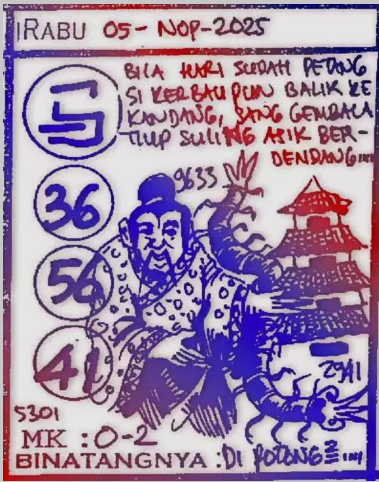 RABU 05 - NOP - 2025
BILA HARI SUDAH PETANG
SI KERBAU PUN BALIK KE
KANDANG, SANG GEMBALA
TIUP SULING ASIK BER-
DENDANG
9633
36
56
41
2941
5301
MK : 0-2
BINATANGNYA : DI POTONG²